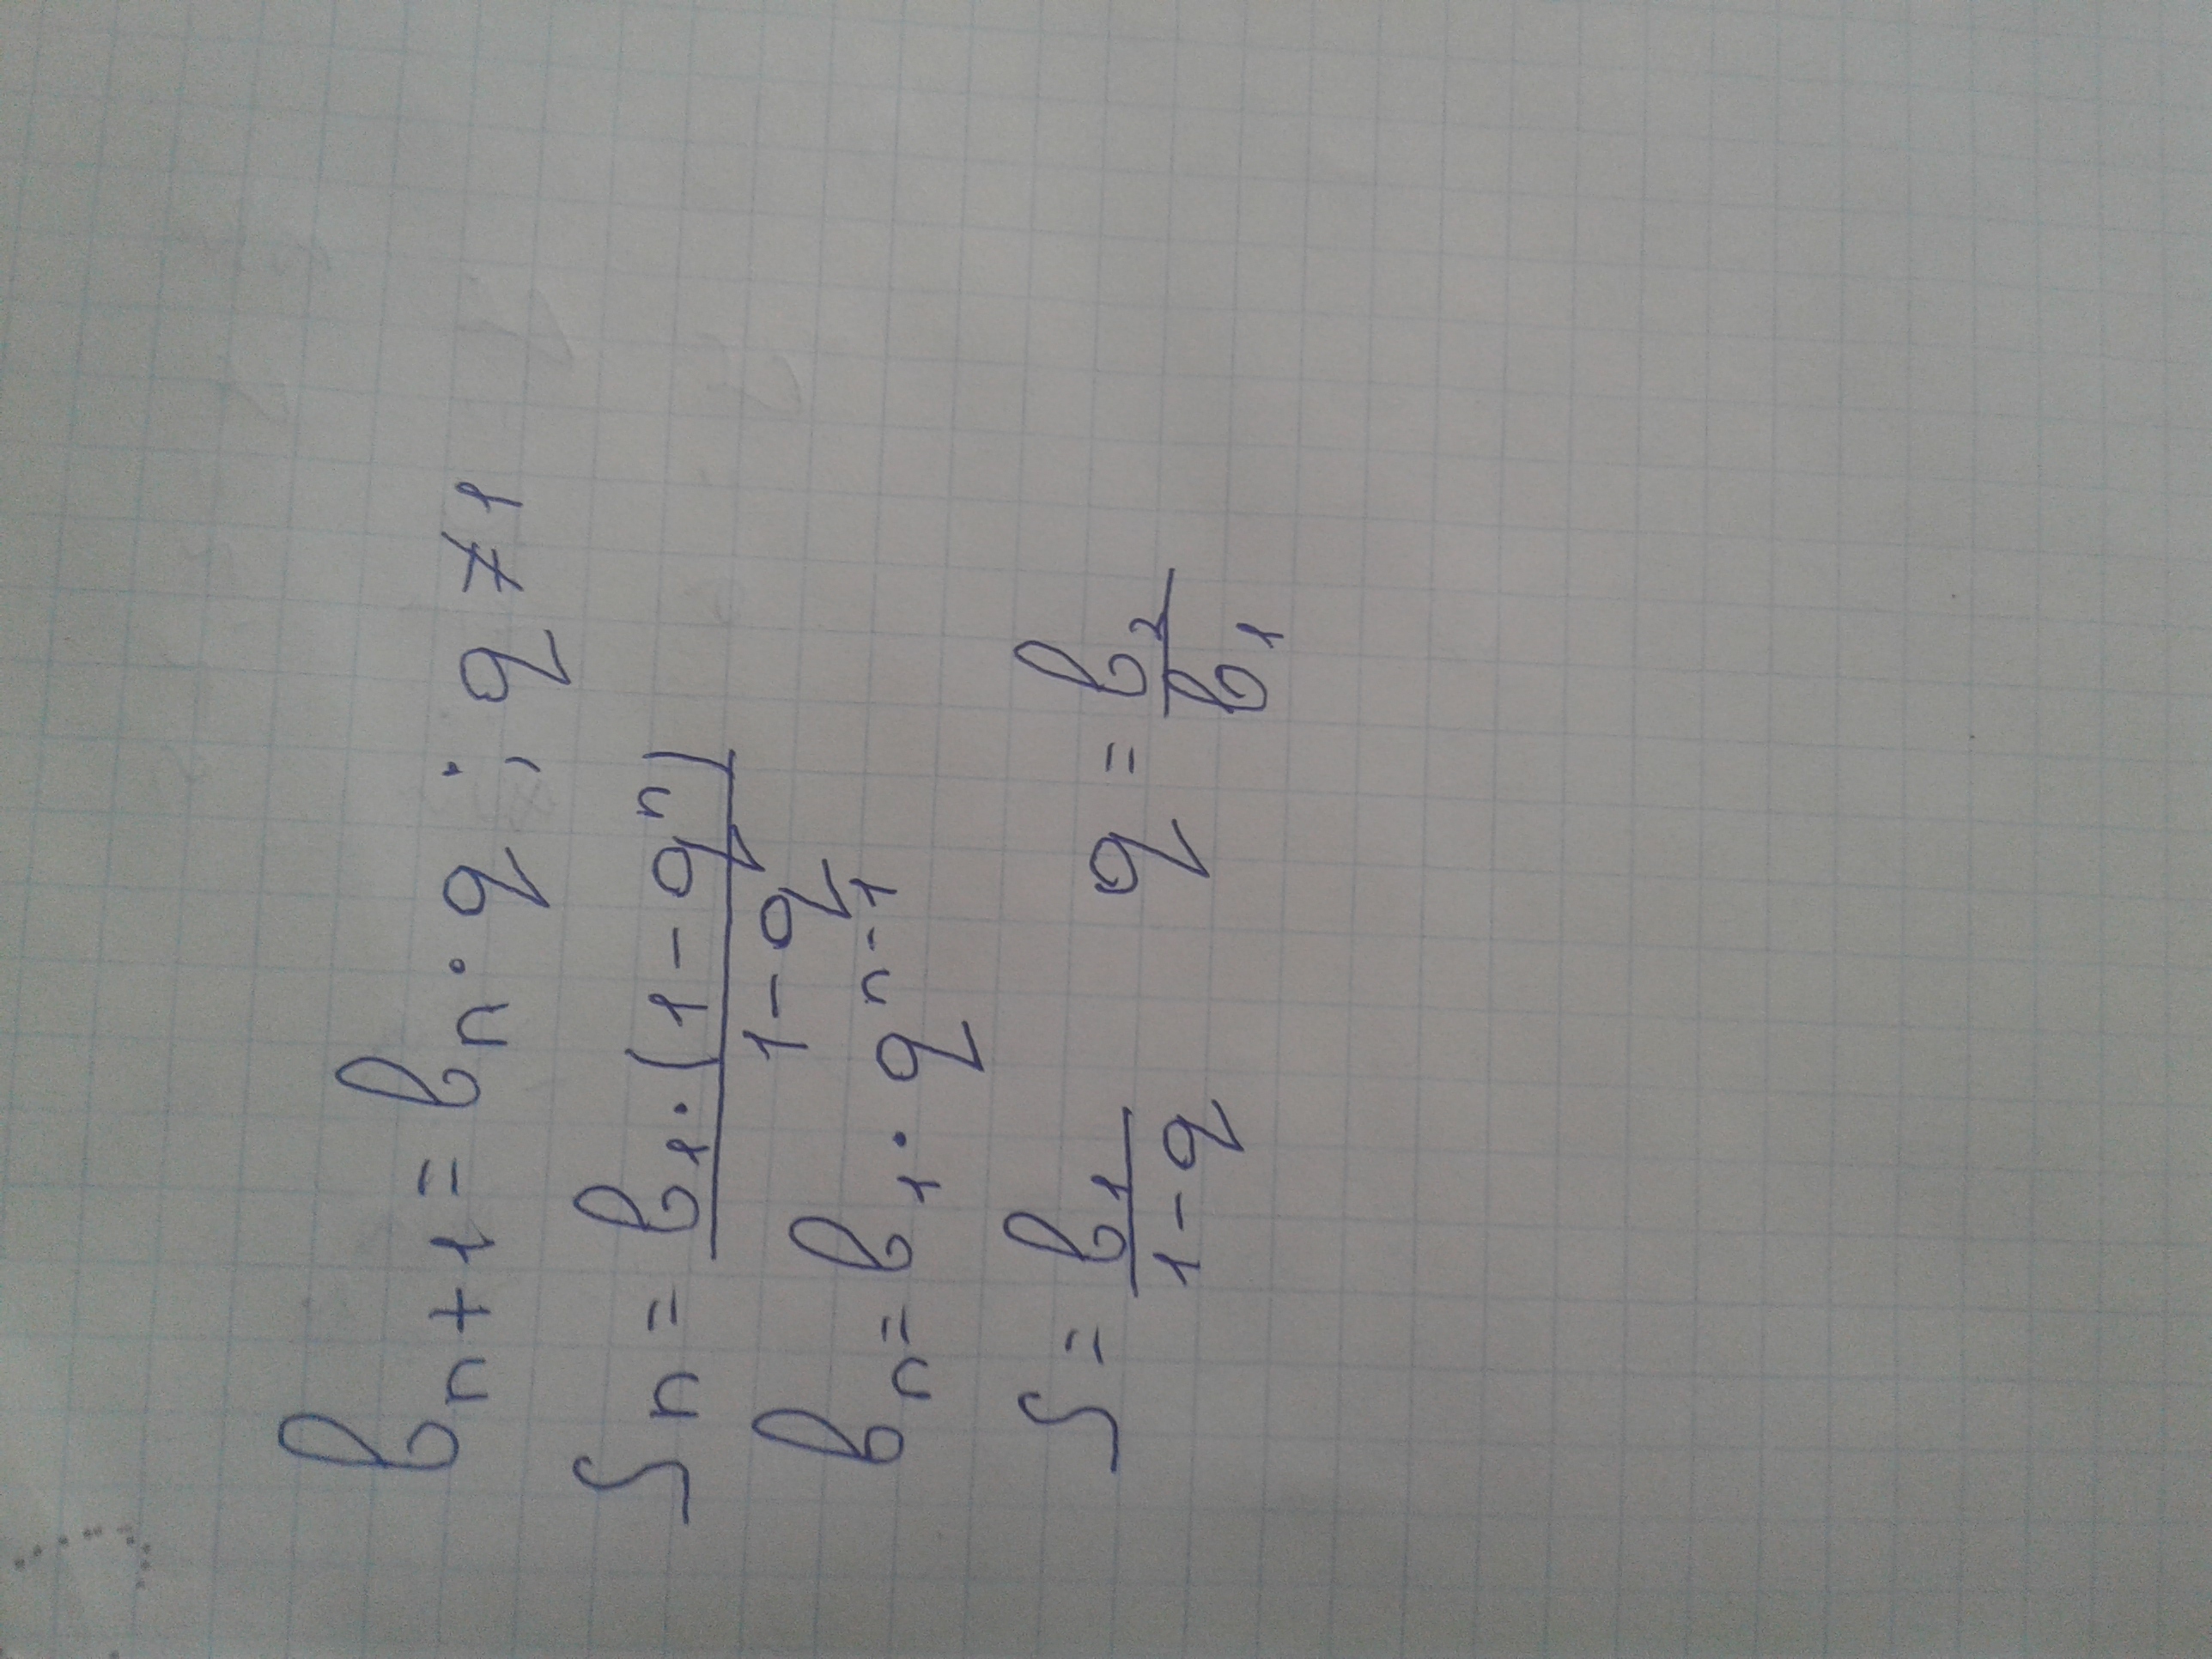 bₙ₊₁ = bₙ · q ; q ≠ 1
Sₙ = b₁ · (1 - qⁿ) / 1 - q
bₙ = b₁ · qⁿ⁻¹
S = b₁ / 1 - q q = b₂ / b₁